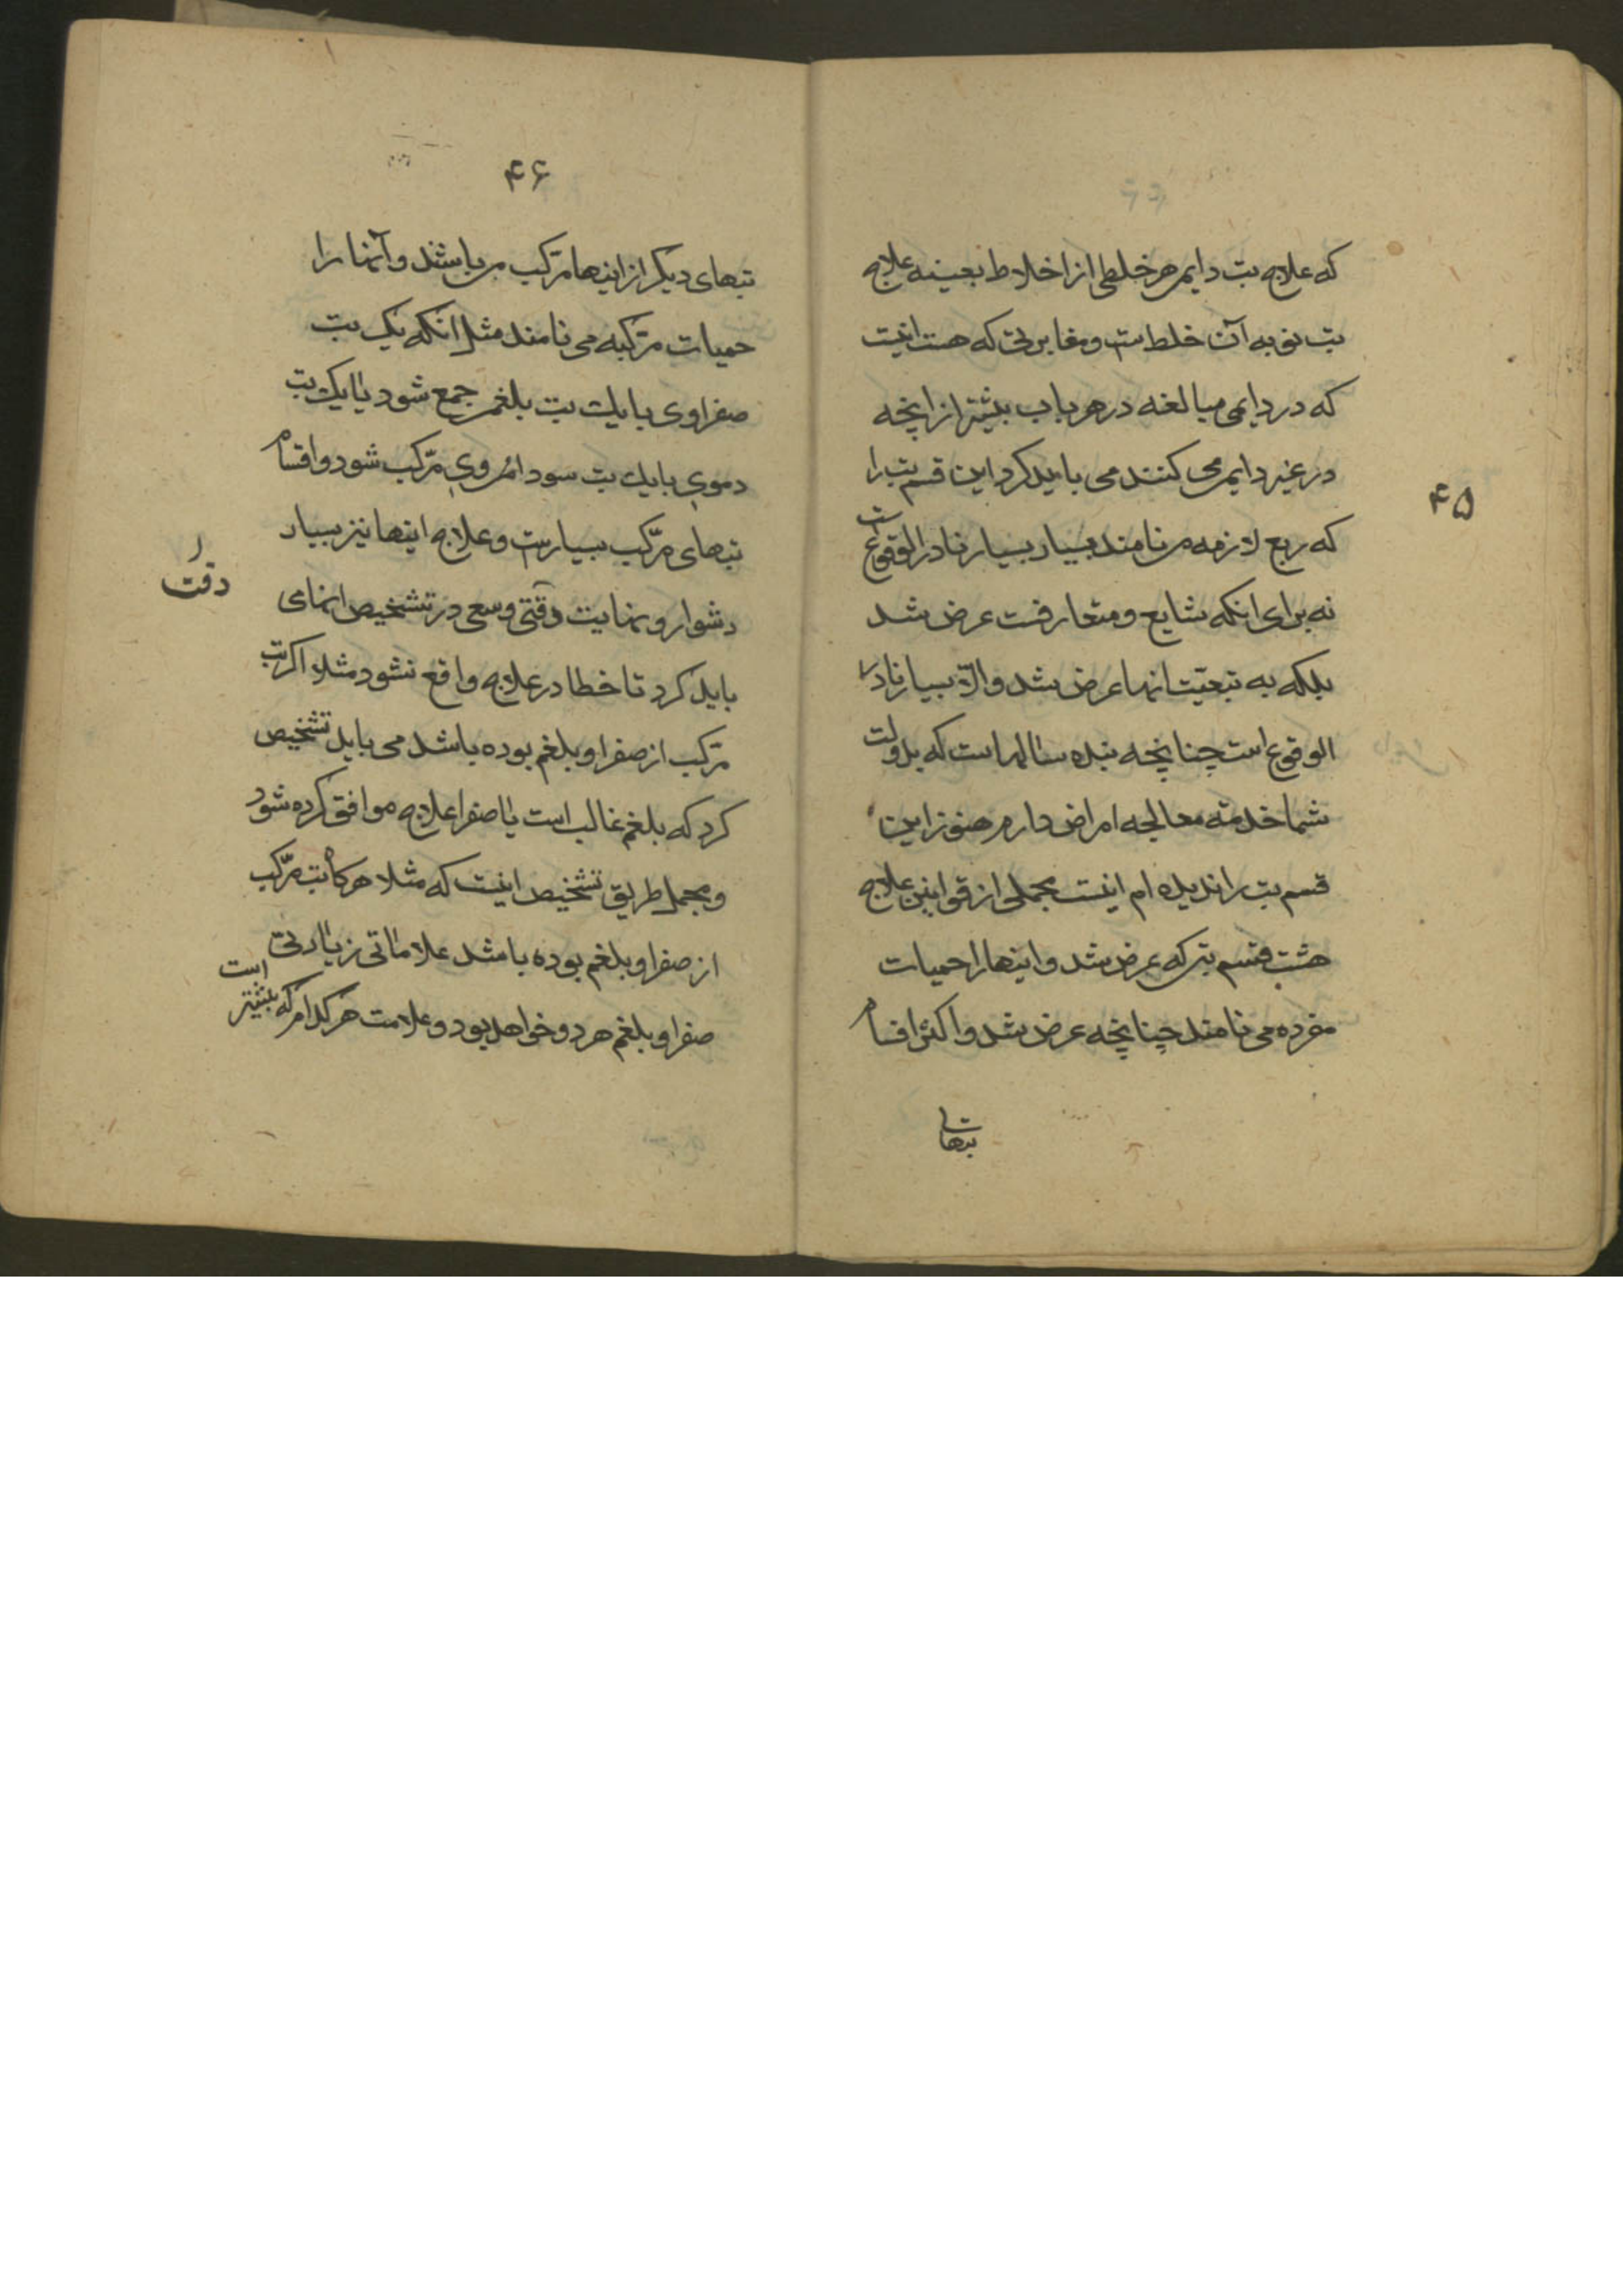 که علاج تب دایمی هر خلطی از اخلاط بعینه علاج
تب نوبه آن خلطست و مغایرتی که هست اینست
که در دایمی مبالغه در هر باب بیشتر از انچه
در غیر دایمی می کنند می باید کرد این قسم تب را
که ربع لازمه می نامند بسیار بسیار نادر الوقوع است
نه برای انکه شایع و متعارفست عرض شد
بلکه به تبعیّت انها عرض شد والّا بسیار نادر
الوقوع است چنانچه بنده سالها است که بدولت
شما خدمته معالجه امراض دارم هنوز این
قسم تب را ندیده ام اینست مجملی از قوانین علاج
هشت قسم تبی که عرض شد و اینها را حمیات
مفرده می نامند چنانچه عرض شد و اکثر اقسام
تبهای
۴۵
۴۶
تبهای دیگر از اینها مرّکب می باشند و آنها را
حمیات مرّکبه می نامند مثل انکه یک تب
صفراوی با یک تب بلغمی جمع شود یا یک تب
دموی با یک تب سوداوی مرّکب شود و اقسام
تبهای مرّکب بسیارست و علاج اینها نیز بسیار
دشوار و نهایت دقتی و سعی در تشخیص انهای
باید کرد تا خطا در علاج واقع نشود مثلا اگر تب
مرّکب از صفرا و بلغم بوده باشد می باید تشخیص
کرد که بلغم غالب است یا صفرا علاج موافق کرده شود
و مجمل طریق تشخیص اینست که مثلا هرگاه تب مرّکب
از صفرا و بلغم بوده باشد علاماتی زیادتی
صفرا و بلغم هر دو خواهد بود و علامت هر کدام که بیشتر است
دقت